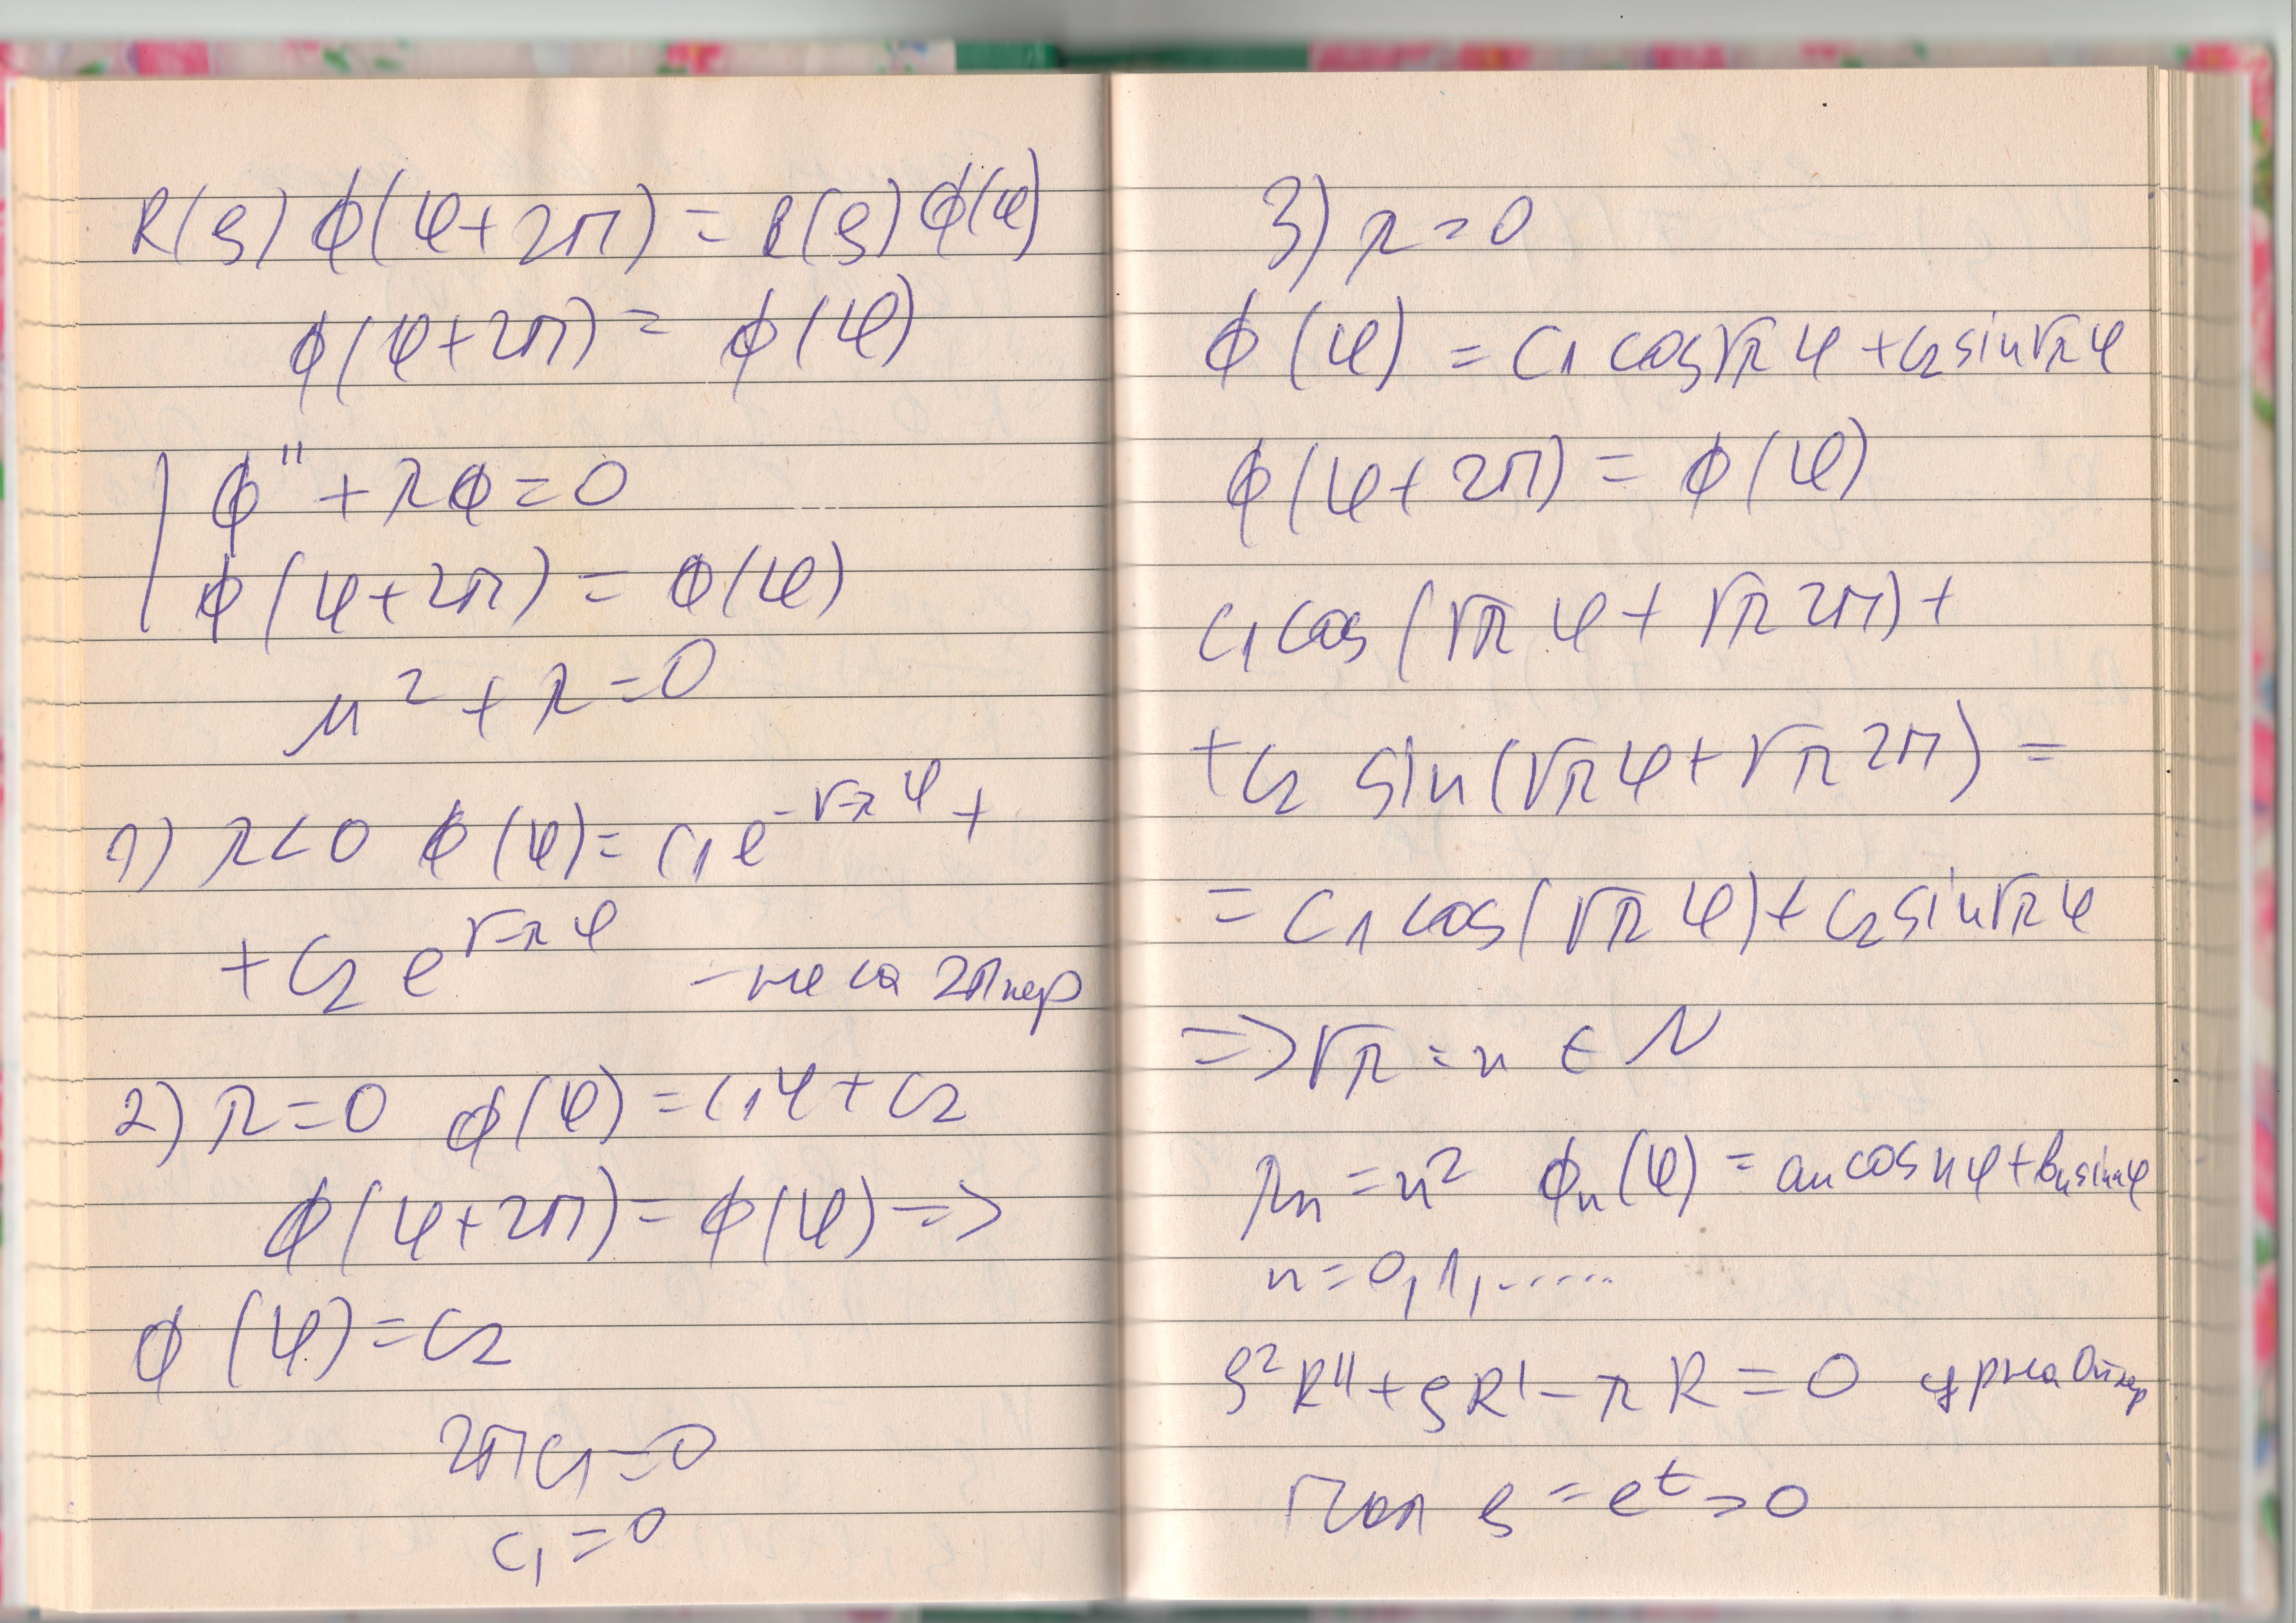 R(ρ) Φ(φ+2π) = R(ρ) Φ(φ)
Φ(φ+2π) = Φ(φ)
Φ'' + λΦ = 0
Φ(φ+2π) = Φ(φ)
μ² + λ = 0
1) λ<0 Φ(φ) = C₁e^{-√-λ φ} +
+ C₂ e^{√-λ φ} - не са 2π пер
2) λ=0 Φ(φ) = C₁φ + C₂
Φ(φ+2π) = Φ(φ) =>
Φ(φ) = C₂
2πC₁=0
C₁=0
3) λ>0
Φ(φ) = C₁ cos√λ φ + C₂ sin√λ φ
Φ(φ+2π) = Φ(φ)
C₁ cos(√λ φ + √λ 2π) +
+ C₂ sin(√λ φ + √λ 2π) =
= C₁ cos(√λ φ) + C₂ sin√λ φ
=> √λ = n ∈ N
λₙ = n² Φₙ(φ) = aₙ cos nφ + bₙ sin nφ
n = 0, 1, .....
ρ²R'' + ρR' - λR = 0 ур на Ойлер
Пол ρ = eᵗ > 0